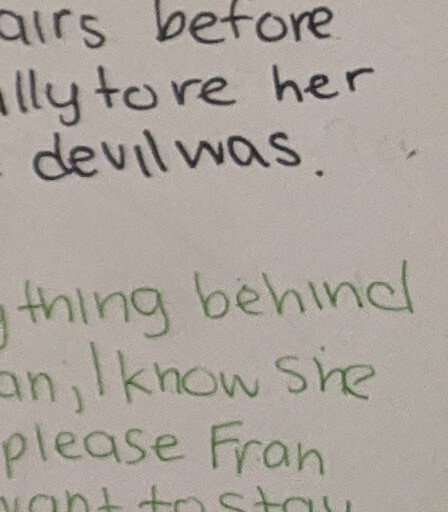 airs before
lly tore her
devil was.
thing behind
an, I know she
please Fran
want to stay